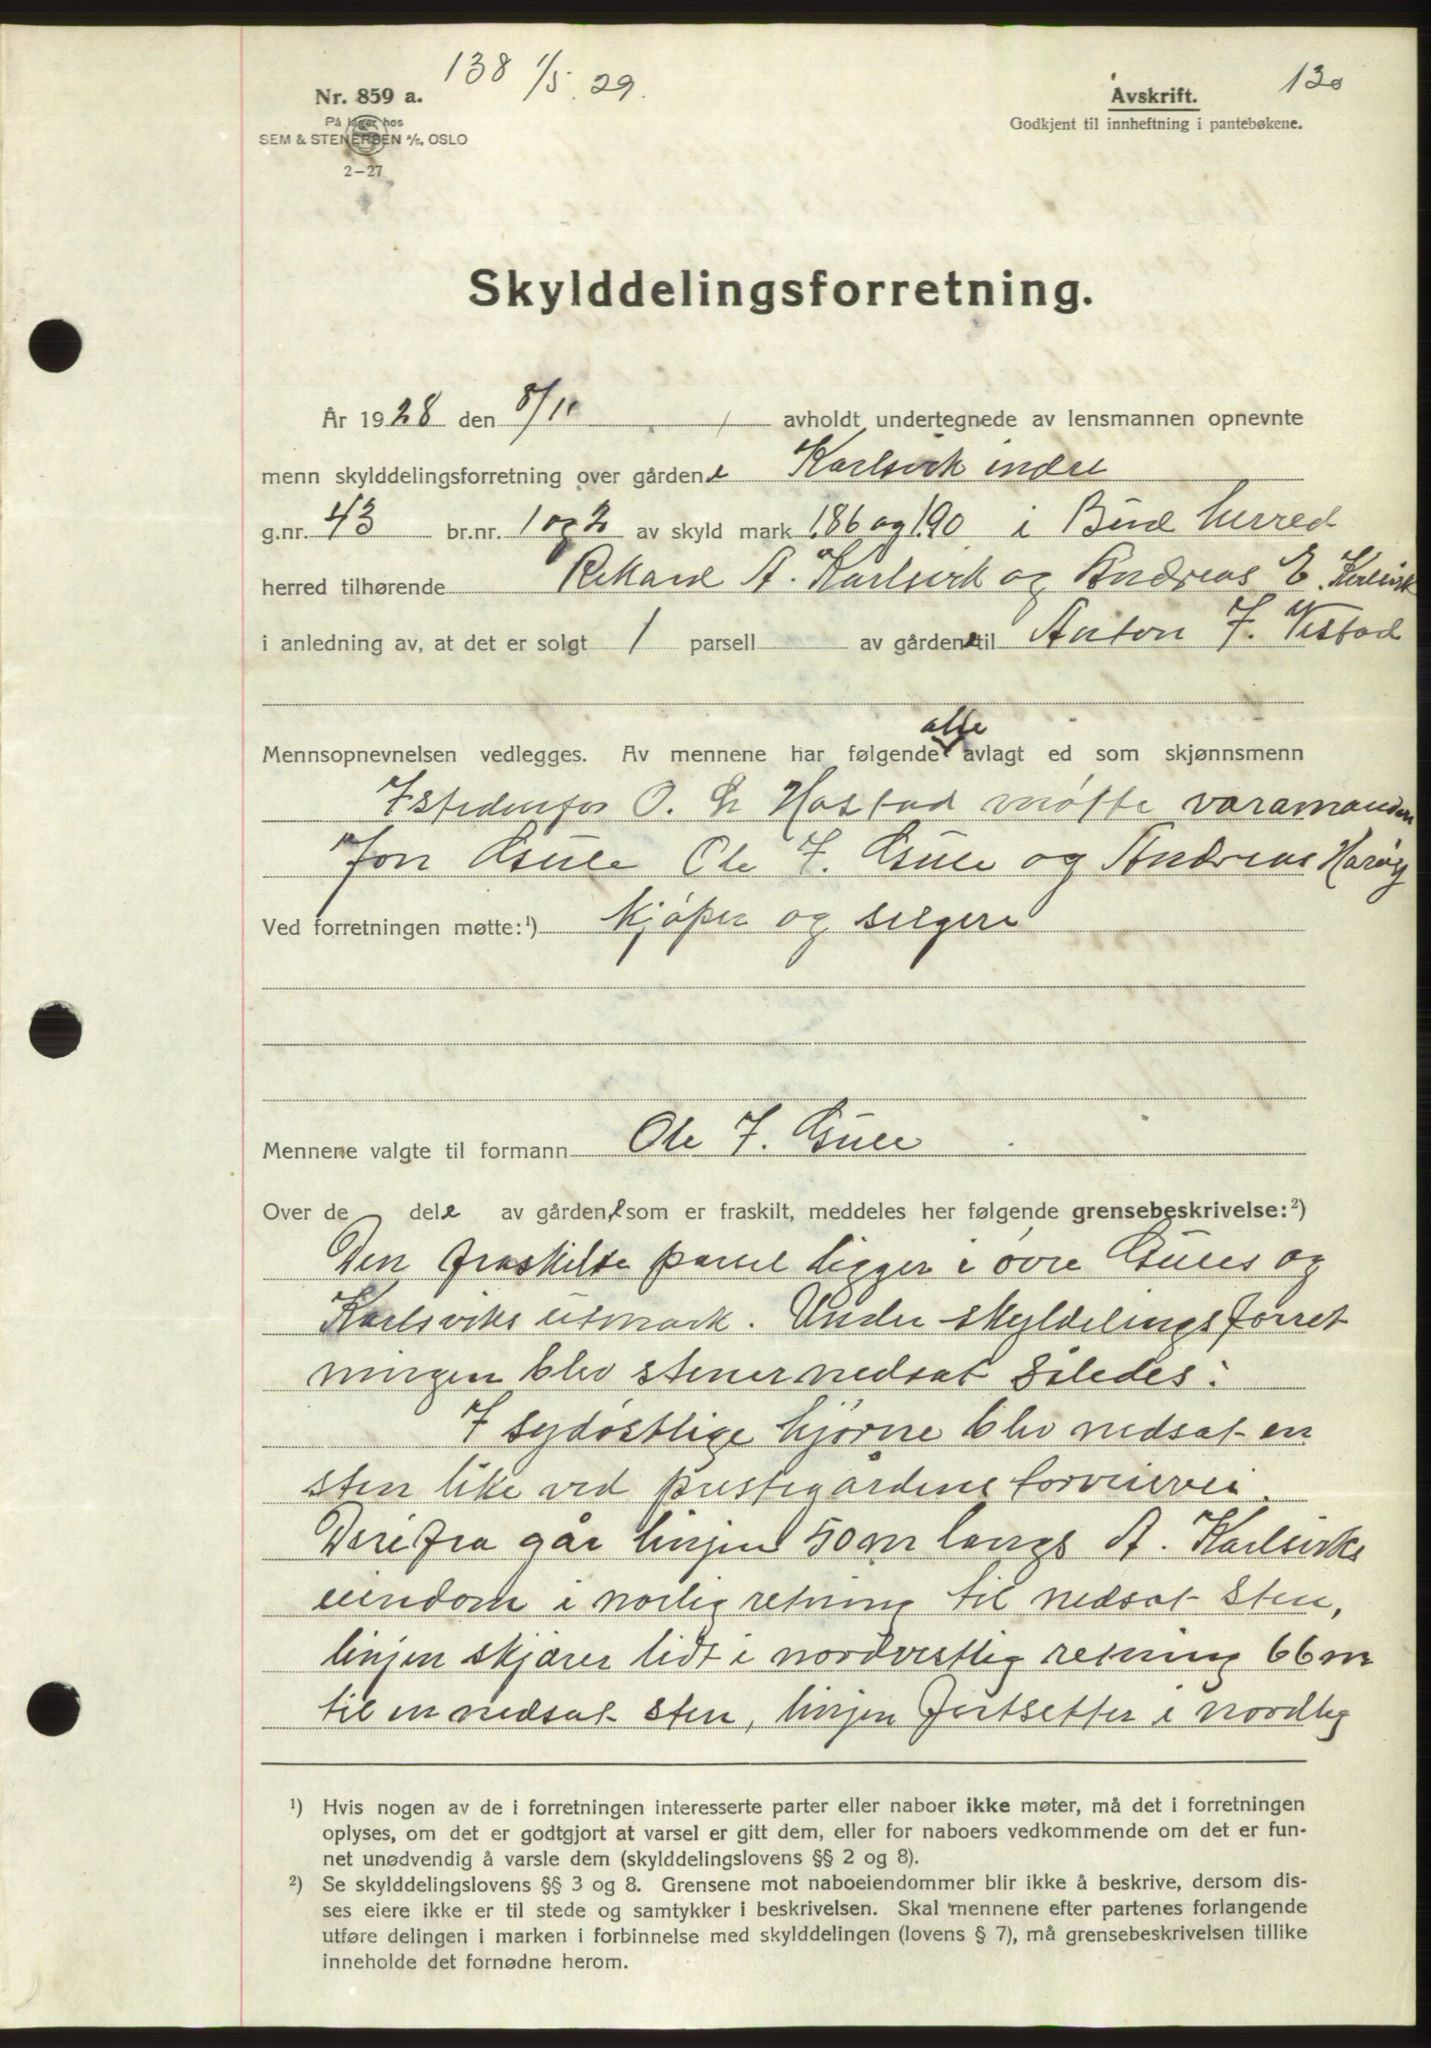 138 1/5 29.
130
Nr. 859 a.
På lager hos
SEM & STENERSEN A/S, OSLO
2–27
Avskrift.
Godkjent til innheftning i pantebøkene.
Skylddelingsforretning.
År 1928 den 8/11 avholdt undertegnede av lensmannen opnevnte
menn skylddelingsforretning over gårdene Karlsvik indre
g.nr. 43 br.nr. 1 og 2 av skyld mark 1.86 og 1.90 i Bud herred
herred tilhørende Rikard A. Karlsvik og Andreas E. Karlsvik
i anledning av, at det er solgt 1 parsell av gårdene til Anton J. Vestad
Mennsopnevnelsen vedlegges. Av mennene har følgende alle avlagt ed som skjønnsmenn
Istedenfor O. Hostad møtte varamanden
Jon Gule Ole J. Gule og Andreas Harøy
Ved forretningen møtte:¹) kjøper og selgere
Mennene valgte til formann Ole J. Gule
Over de dele av gårdene som er fraskilt, meddeles her følgende grensebeskrivelse:²)
Den fraskilte parsel ligger i øvre Gules og
Karlsviks utmark. Under skyldelingsforret
ningen blev stener nedsat således:
I sydøstlige hjørne blev nedsat en
sten like ved prestegårdens torveievei.
Derifra går linjen 50 m langs A. Karlsviks
eiendom i norlig retning til nedsat sten,
linjen skjærer lidt i nordvestlig retning 66 m
til en nedsat sten, linjen fortsetter i nordlig
¹) Hvis nogen av de i forretningen interesserte parter eller naboer ikke møter, må det i forretningen
oplyses, om det er godtgjort at varsel er gitt dem, eller for naboers vedkommende om det er fun-
net unødvendig å varsle dem (skylddelingslovens §§ 2 og 8).
²) Se skylddelingslovens §§ 3 og 8. Grensene mot naboeiendommer blir ikke å beskrive, dersom dis-
ses eiere ikke er til stede og samtykker i beskrivelsen. Skal mennene efter partenes forlangende
utføre delingen i marken i forbinnelse med skylddelingen (lovens § 7), må grensebeskrivelsen tillike
inneholde det fornødne herom.